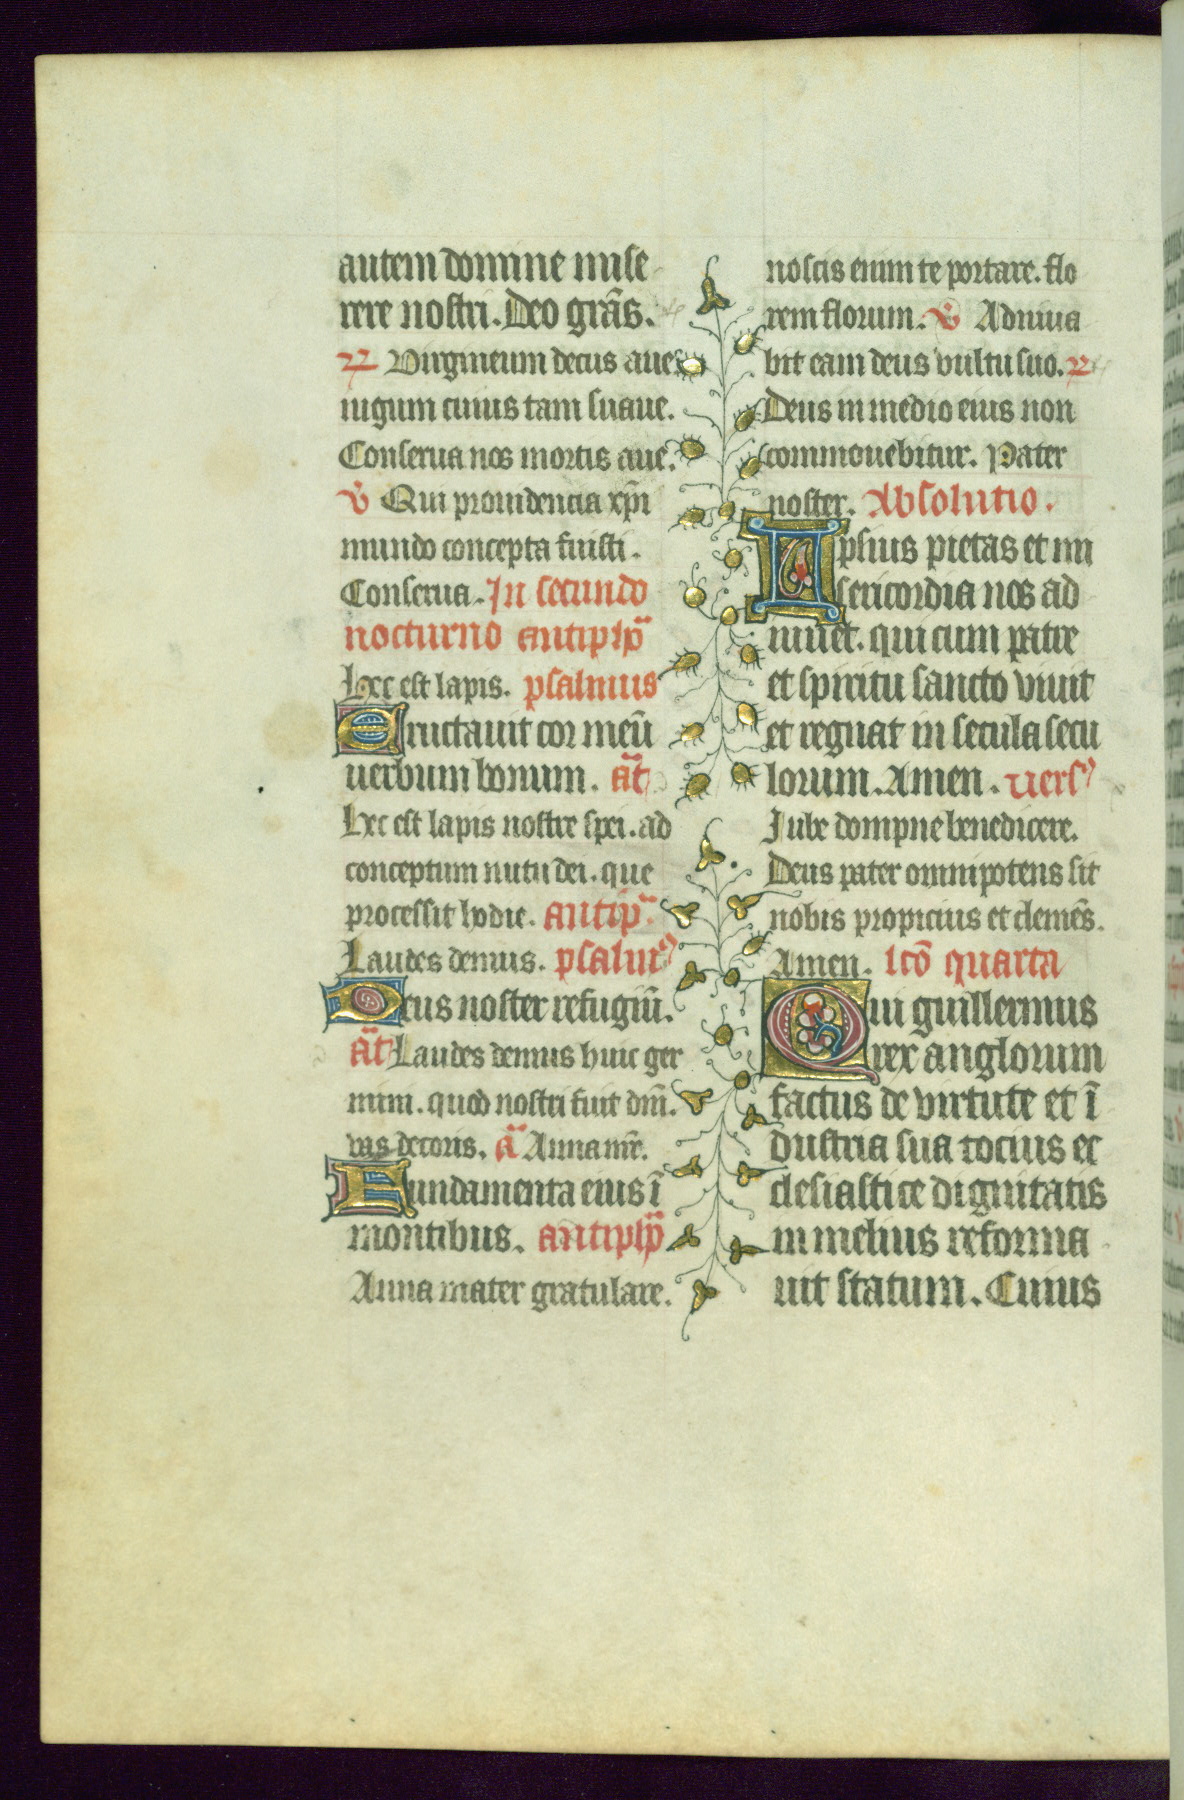 autem domine mise
rere nostri. Deo grãs.
R Virgineum decus aues
iugum cuius tam suaue.
Conserua nos mortis aue.
V Qui prouidencia xp̃i
mundo concepta fuisti.
Conserua. In secundo
nocturno antiph̃
Hec est lapis. psalmus
Eructauit cor meũ
uerbum bonum. ãt
Hec est lapis nostre spei. ad
conceptum nutu dei. que
processit hodie. antip̃
Laudes demus. psalm9
Deus noster refugiũ.
ãt Laudes demus huic ger
mini. quod nostri fuit dñi.
vas decoris. ã Anna mr̃e.
Fundamenta eius ĩ
montibus. antiph̃
Anna mater gratulare.
noscis enim te portare. flo
rem florum. V Adiuua
bit eam deus vultu suo. R
Deus in medio eius non
commouebitur. Pater
noster. Absolutio.
Ipsius pietas et mi
sericordia nos ad
iuuet. qui cum patre
et spiritu sancto viuit
et regnat in secula secu
lorum. Amen. vers9
Iube dompne benedicere.
Deus pater omnipotens sit
nobis propicius et clemẽs.
Amen. lcõ quarta
Qui guillermus
rex anglorum
factus de virtute et ĩ
dustria sua tocius ec
clesiastice dignitatis
in melius reforma
uit statum. Cuius